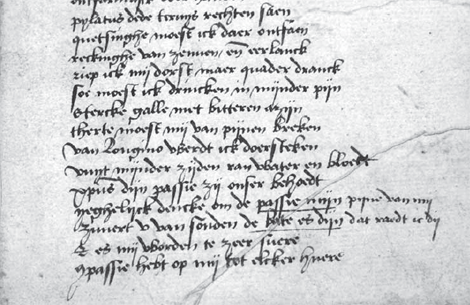 pylatus dede truys rechten saen
quetsinghe moest ick daer ontfaen
reckinghe van zenuen en eerlanck
riep ick mij dorst maer quader dranck
soe moest ick drincken in mijnder pijn
stercke galle met bitteren
therte moest mij van pijnen breken
van longino wordt ick doersteken
wunt mijnder zijden ran water en bloedt
xpus dijn passie zij onser behoedt
yeghelijck dencke om de passie mijn pijne van mij
zuuert v van sonden de bate es dijn dat raedt ic dij
es mij worden te zeer suere
passie hebt op mij tot elcker huere